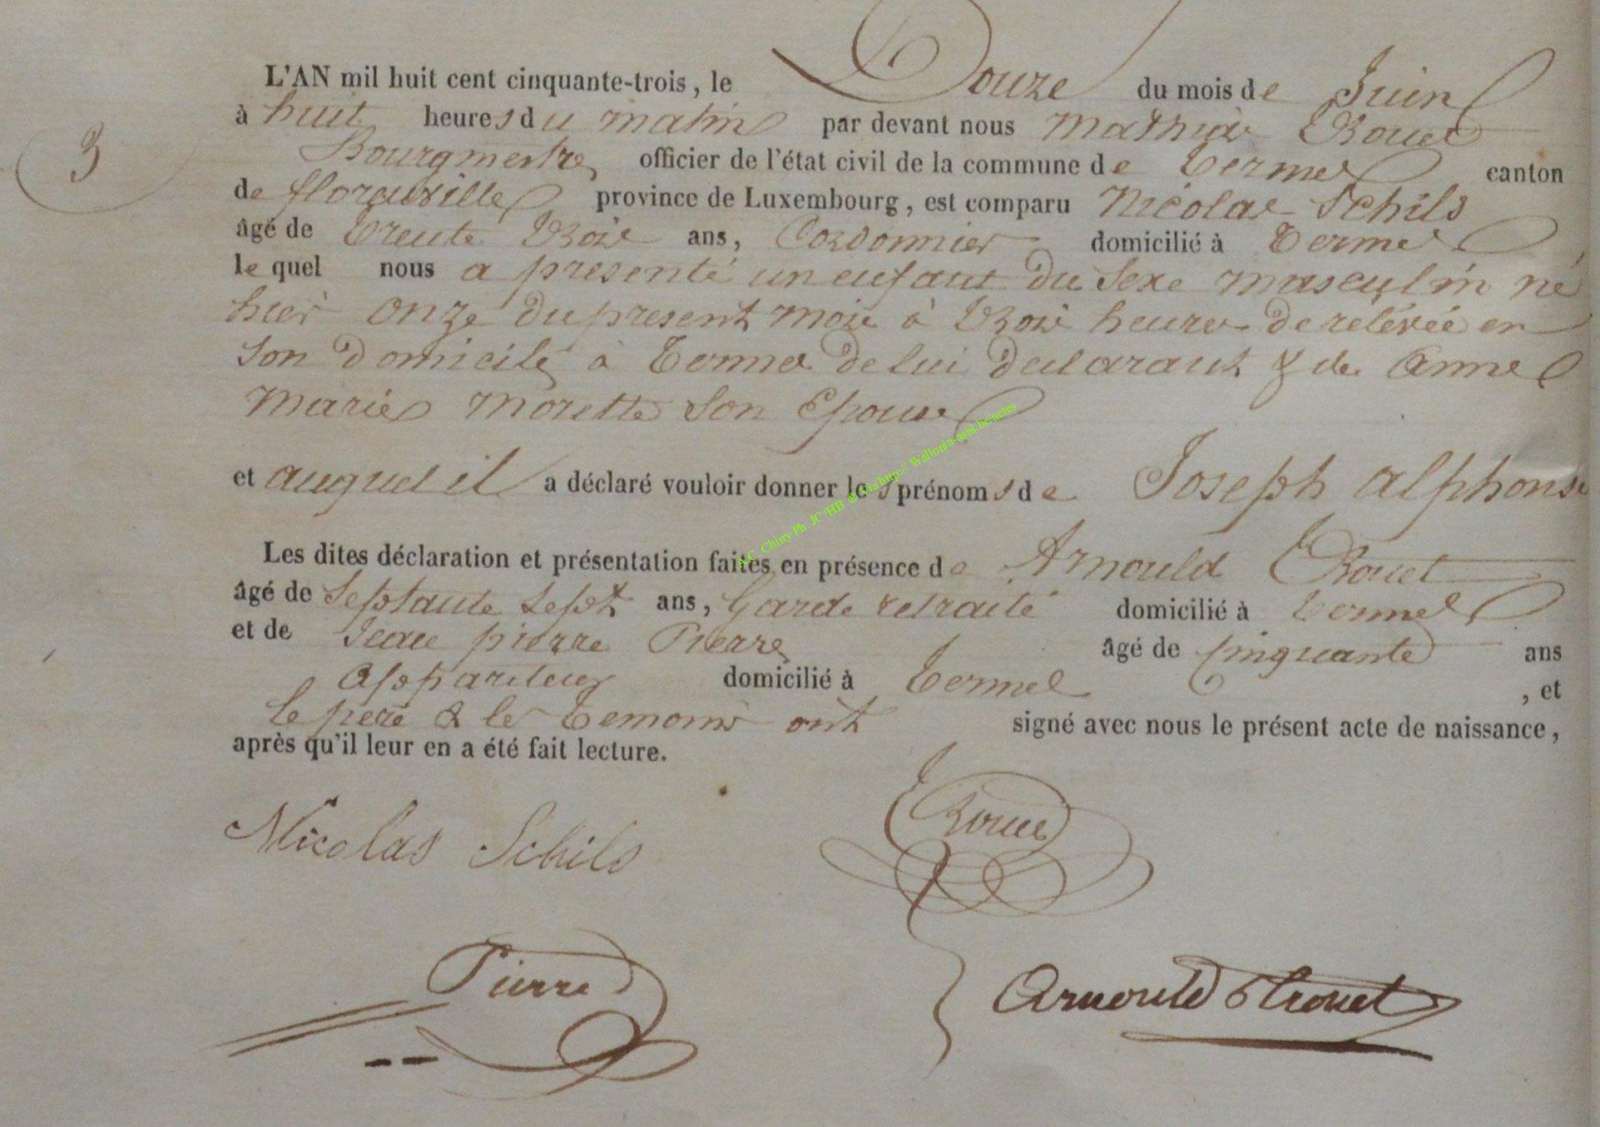 L'AN mil huit cent cinquante-trois, le Douze du mois de Juin
3
à huit heures du matin par devant nous Mathias
Bourgmestre officier de l'état civil de la commune de Termes canton
de florenville province de Luxembourg, est comparu Nicolas Schils
âgé de trente trois ans, Cordonnier domicilié à Termes
le quel nous a presenté un enfant du Sexe masculin né
hier onze du present mois à trois heures de relévée en
son domicile à Termes de lui declarant & de Anne
Marie Morette son Epouse
et auquel il a déclaré vouloir donner les prénoms de Joseph alphonse
Les dites déclaration et présentation faites en présence de Arnould
âgé de Septante Sept ans, Garde retraité domicilié à Termes
et de Jean pierre Pierre âgé de Cinquante ans
Appariteur domicilié à Termes , et
le pere & les temoins ont signé avec nous le présent acte de naissance,
après qu'il leur en a été fait lecture.
Nicolas Schils
Pierre Arnould